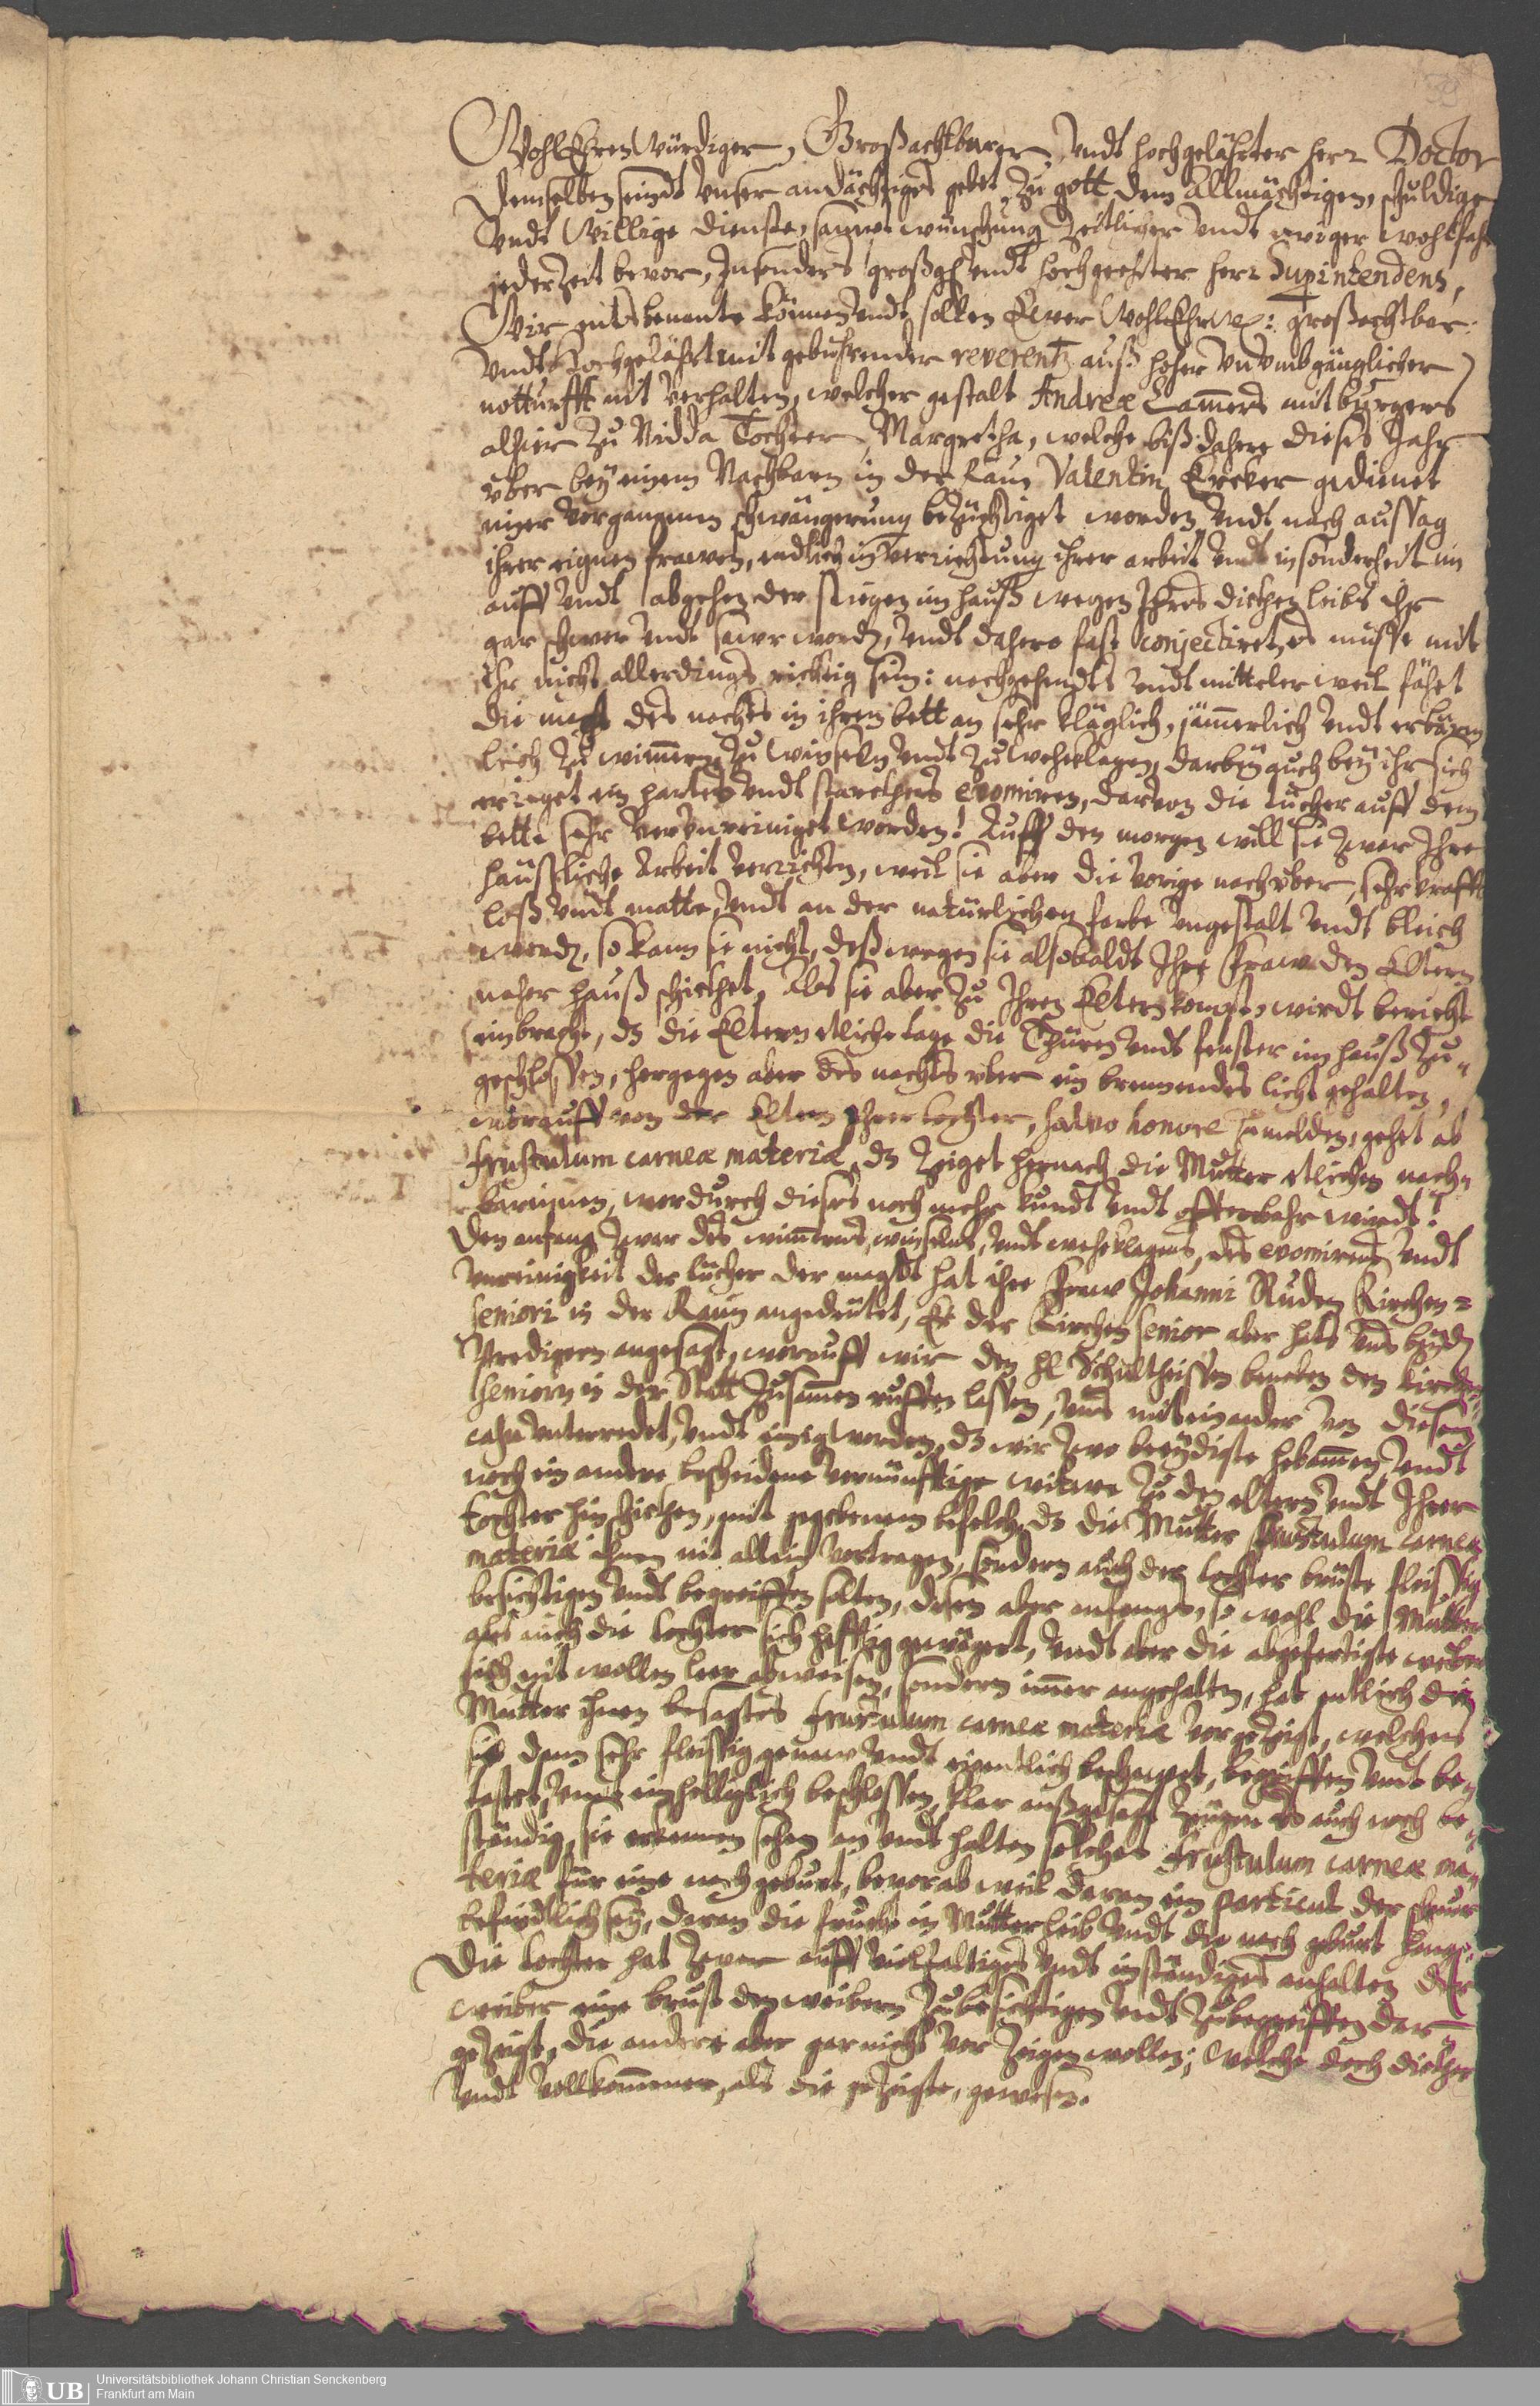 WohlEhrenWürdiger, Großachtbarer, undt hochgelährter herr Doctor
demselben seindt unser andächtiges gebet zu gott dem Allmächtigen, schuldige
undt Willige dienste, sampt wünschung Zeitlicher undt ewiger Wohlfahrt
jederZeit bevor, Insonders großgl. undt hochgeehrter herr Supintendens,
Wir entsbenante können undt sollen Ewer WohlEhrW: großachtbar:
undt Hochgelährt mit gebührender reverentz auß hoher unumbgänglicher
notturfft nit verhalten, welcher gestalt Andreæ Lammers mitburgers
alhier zu Nidda Tochter, Margretha, welche biß dahero dieses Jahr
über bey einem Nachbarn in der Raun Valentin Ercker gedienet
einer vorgangenen schwängerung bezüchtiget worden, undt nach aussag
ihrer eignen frawen, endlich in verrichtung ihrer arbeit undt in sonderheit im
auff undt abgehen der stiegen im hauß wegen Ihres dicken leibs ihr
gar schwer undt sawr word, undt dahero fast conjectiret, es müsse mit
Ihr nicht allerdings richtig sein: nachgehendts undt mittler weil fähet
die magt des nachts in ihrem bett an sehr kläglich, jämmerlich undt erbärm
lich zu wimmern, zu winseln undt zu wehklagen, darbey auch bey ihr sich
ereiget ein hartes undt starckes evomiren, darvon die tücher auff dem
bette sehr verunreiniget worden! Auff den morgen will sie zwar Ihre
haußliche Arbeit verrichten, weil sie aber die vorige nacht über, sehr krafft
loß undt matte, undt an der natürlichen farbe ungestalt undt bleich
word, so kann sie nicht, deßwegen sie alsobaldt Ihre fraw den Eltern
naher hauß schicket, Als sie aber zu Ihren Eltern kompt, wirdt bericht
einbracht, dz die Eltern etliche tage die Thüren undt fenster im hauß zu-
geschlossen, hergegen aber des nachts über ein brennendes licht gehalten,
worauff von der Eltern Ihrer tochter, salvo honore zu melden, gehet ab
frustulum carneæ materiæ, dz Zeiget hernach die Mutter etlichen nach-
barinnen, wordurch dieses noch mehr kundt undt offenbahr wirdt!
Den anfang zwar des wimmerns, winselns, undt wehklagens, des evomirens undt
unreinigkeit der tücher der magdt hat ihre fraw Johanni Ruden Kirchen-
seniori in der Raun angedeutet, Er der Kirchen senior aber hats uns beyd
Predigern angesagt, worauff wir den hl Schultheissen beneben den kirchen
seniorn in der Statt zusamen ruffen lassen, uns miteinander von diesem
casu unterredet, undt einig worden, dz wir zwo beeydigte hebammen, undt
noch ein andere bescheidene vernünfftige witwe zu den eltern undt Ihrer
tochter hinschicken, mit gegebenem befelch, dz die Mutter frustulum carneæ
materiæ ihnen nit allein vortragen, sondern auch der tochter brüste fleissig
besichtigen undt begreiffen solten, dessen aber anfangs, so wohl die Mutter
als auch die tochter sich hefftig gewegert, undt aber die abgefertigte weiber
sich nit wollen leer abweisen, sondern immer angehalten, hat entlich die
Mutter ihnen besagtes frustulum carneæ materiæ vorgezeigt, welches
sie dann sehr fleissig genaw undt eigentlich beschawet, begriffen undt be-
tastet, und einhelliglich beschlossen, klar außgesagt, zeugen es auch noch be-
ständig, sie erkennen sehen an undt halten solches frustulum carneæ ma-
teriæ für eine nachgeburt, bevorab weil daran ein particul der schnur
befindtlich sey, daran die frucht in Mutterleib undt die nachgeburt hange.
Die tochter hat zwar auff vielfaltiges undt inständiges anhalten der
weiber eine brust den weibern zu besichtigen undt zu begreiffen dar-
gezeigt, die andere aber gar nicht vor Zeigen wollen; welche doch dicker
undt vollkommener, als die gezeigte, gewesen.
Universitätsbibliothek Johann Christian Senckenberg
Frankfurt am Main
UB